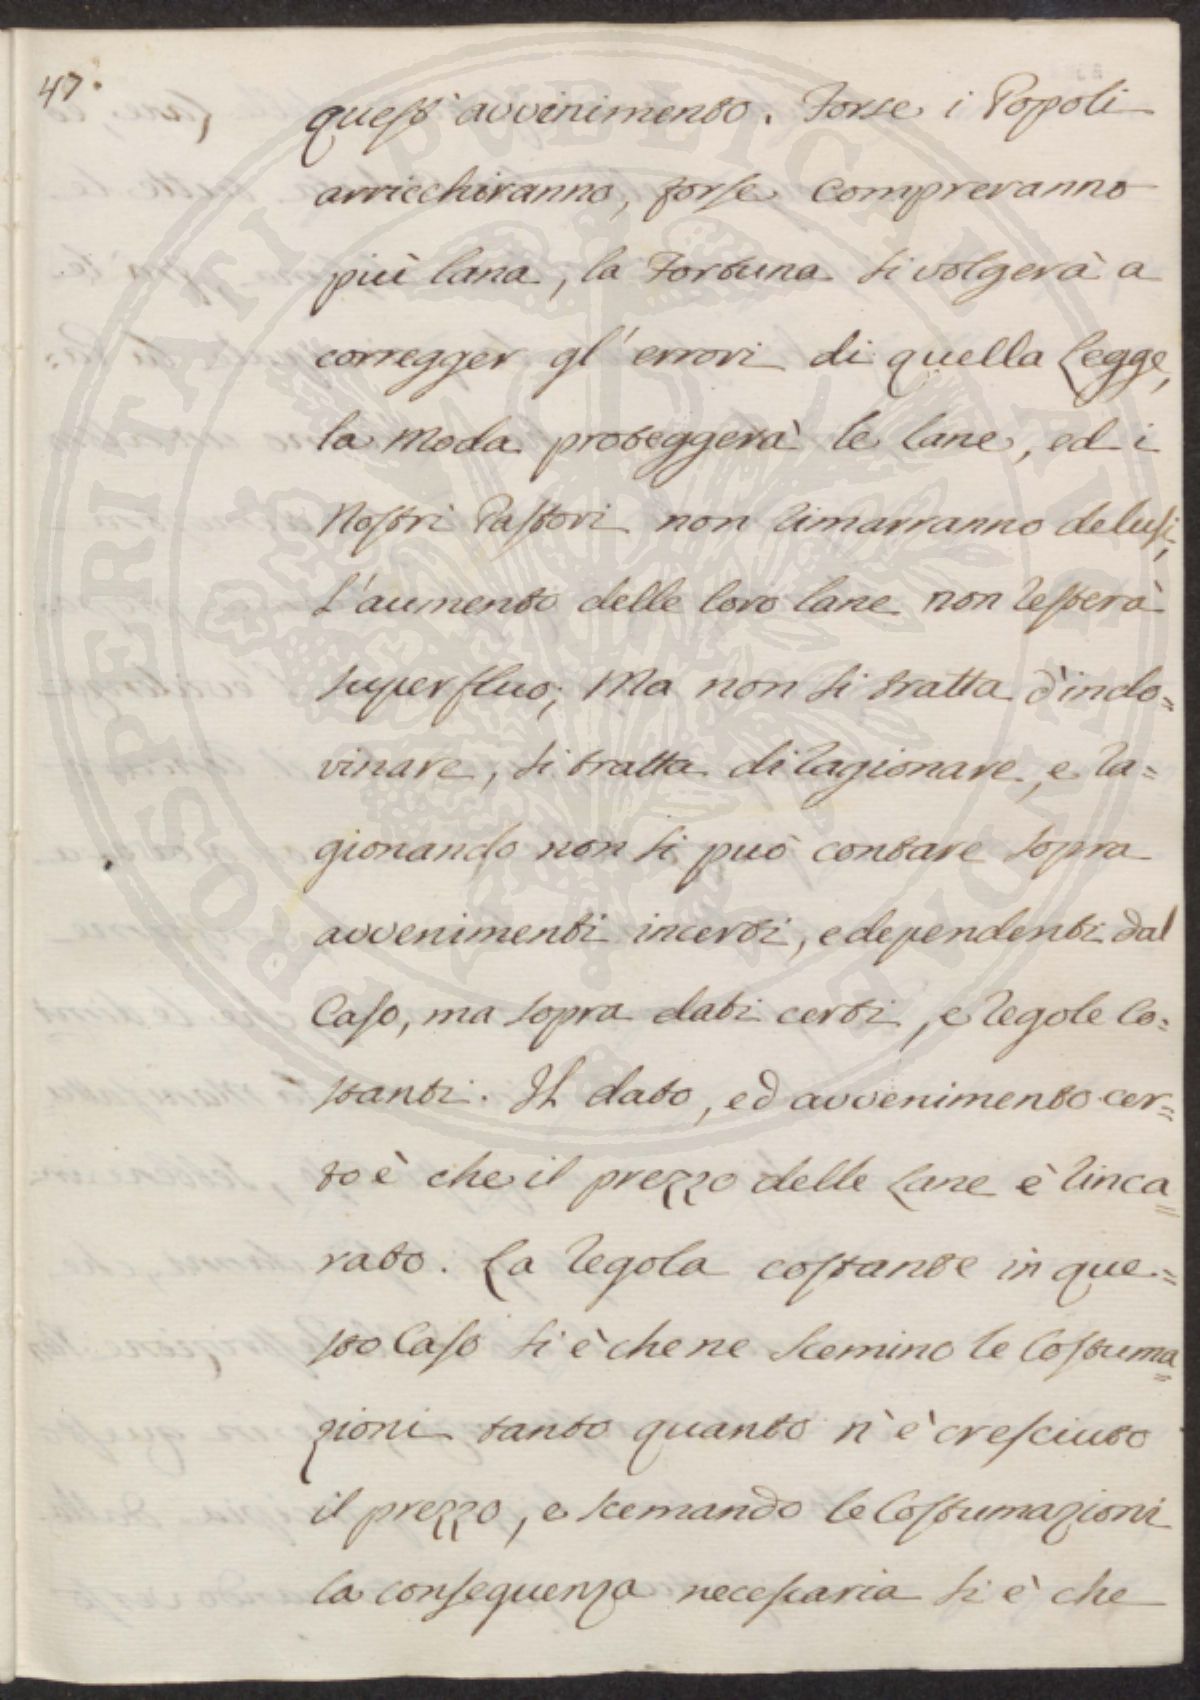 47.
quest' avvinimento. Forse i Popoli
arricchiranno, forse compreranno
più lana, la Fortuna si volgerà a
corregger gl'errori di quella Legge,
la Moda proteggerà le lane, ed i
Nostri Pastori non rimarranno delusi,
L'aumento delle loro lane non resterà
superfluo; Ma non si tratta d'indo=
vinare, si tratta di ragionare, e ra=
gionando non si può contare sopra
avvenimenti incerti, e dependenti dal
Caso, ma sopra dati certi, e regole Co=
stanti. Il dato, ed avvenimento cer=
to è che il prezzo delle Lane è rinca=
rato. La regola costante in que=
sto Caso si è che ne scemino le Costuma=
zioni tanto quanto n'è cresciuto
il prezzo, e scemando le Costumazioni
la conseguenza necessaria si è che
PROSPERITATI PUBLICAE AUGENDAE